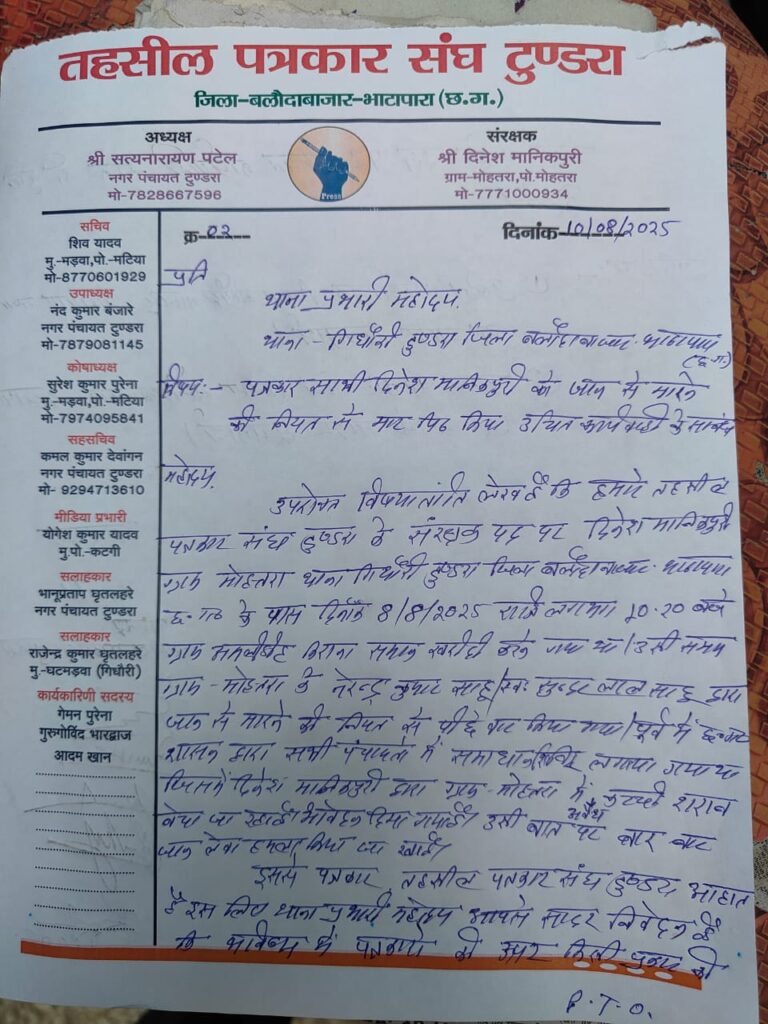 तहसील पत्रकार संघ टुण्डरा
जिला-बलौदाबाजार-भाटापारा (छ.ग.)
अध्यक्ष
श्री सत्यनारायण पटेल
नगर पंचायत टुण्डरा
मो-7828667596
Press
संरक्षक
श्री दिनेश मानिकपुरी
ग्राम-मोहतरा,पो.मोहतरा
मो-7771000934
सचिव
शिव यादव
मु.-मड़वा,पो.-मटिया
मो-8770601929
उपाध्यक्ष
नंद कुमार बंजारे
नगर पंचायत टुण्डरा
मो-7879081145
कोषाध्यक्ष
सुरेश कुमार पुरेना
मु.-मड़वा,पो.-मटिया
मो-7974095841
सहसचिव
कमल कुमार देवांगन
नगर पंचायत टुण्डरा
मो- 9294713610
मीडिया प्रभारी
योगेश कुमार यादव
मु.पो.-कटगी
सलाहकार
भानूप्रताप घृतलहरे
नगर पंचायत टुण्डरा
सलाहकार
राजेन्द्र कुमार घृतलहरे
मु.-घटमड़वा (गिधौरी)
कार्यकारिणी सदस्य
गेमन पुरेना
गुरुगोविंद भारद्वाज
आदम खान
क्र 02
दिनांक 10/08/2025
प्रति
थाना प्रभारी महोदय.
थाना - गिधौरी टुण्डरा जिला बलौदाबाजार-भाटापारा
(छ.ग.)
विषय:- पत्रकार साथी दिनेश मानिकपुरी को जान से मारने
की नियत से मार पिट किया उचित कार्यवाही के संबंध
महोदय,
उपरोक्त विषयांतर्गत लेख है कि हमारे तहसील
पत्रकार संघ टुण्डरा के संरक्षक पद पर दिनेश मानिकपुरी
ग्राम मोहतरा थाना गिधौरी टुण्डरा जिला बलौदाबाजार-भाटापारा
छ.ग. के पास दिनांक 8/8/2025 रात्रि लगभग 10.20 बजे
ग्राम किराना समान खरीदी करने गया था/उसी समय
ग्राम-मोहतरा के नरेन्द्र कुमार साहू/स्व. सुन्दर लाल साहू द्वारा
जान से मारने की नियत से पीछे वार किया गया/पूर्व में छ.ग.
शासन द्वारा सभी पंचायतो में समाधान शिविर लगाया गया था
जिसमें दिनेश मानिकपुरी द्वारा ग्राम-मोहतरा में कच्ची शराब
अवैध
बेचा जा रहा है आवेदन दिया गया है। उसी बात पर बार बार
जान लेवा हमला किया जा रहा है।
इससे पत्रकार, तहसील पत्रकार संघ टुण्डरा आहात
है इस लिए थाना प्रभारी महोदय आपसे सादर निवेदन है
कि भविष्य में पत्रकारो के उपर किसी प्रकार की
P.T.O.